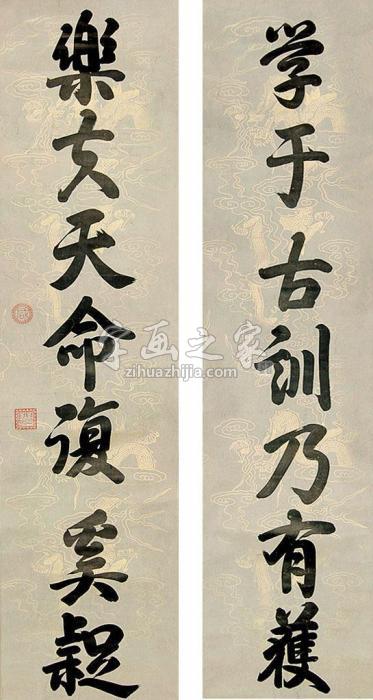 学于古訓乃有獲
樂夫天命復奚疑
字画之家
zihuazhijia.com